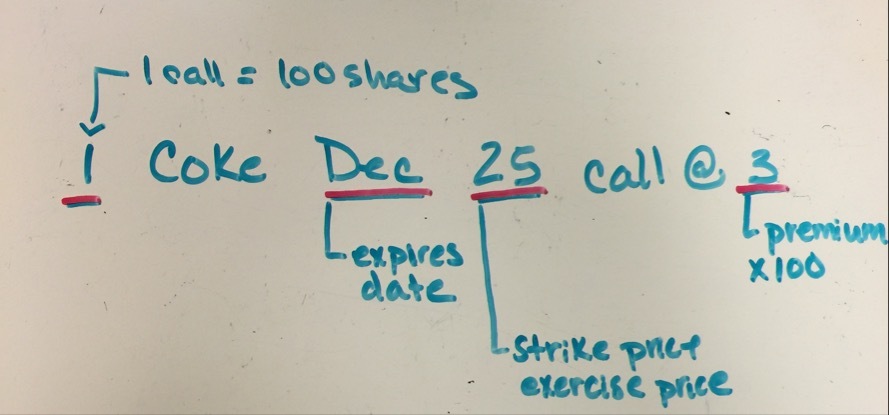 1 call = 100 shares
1 Coke Dec 25 call @ 3
premium
x100
expires
date
strike price
exercise price